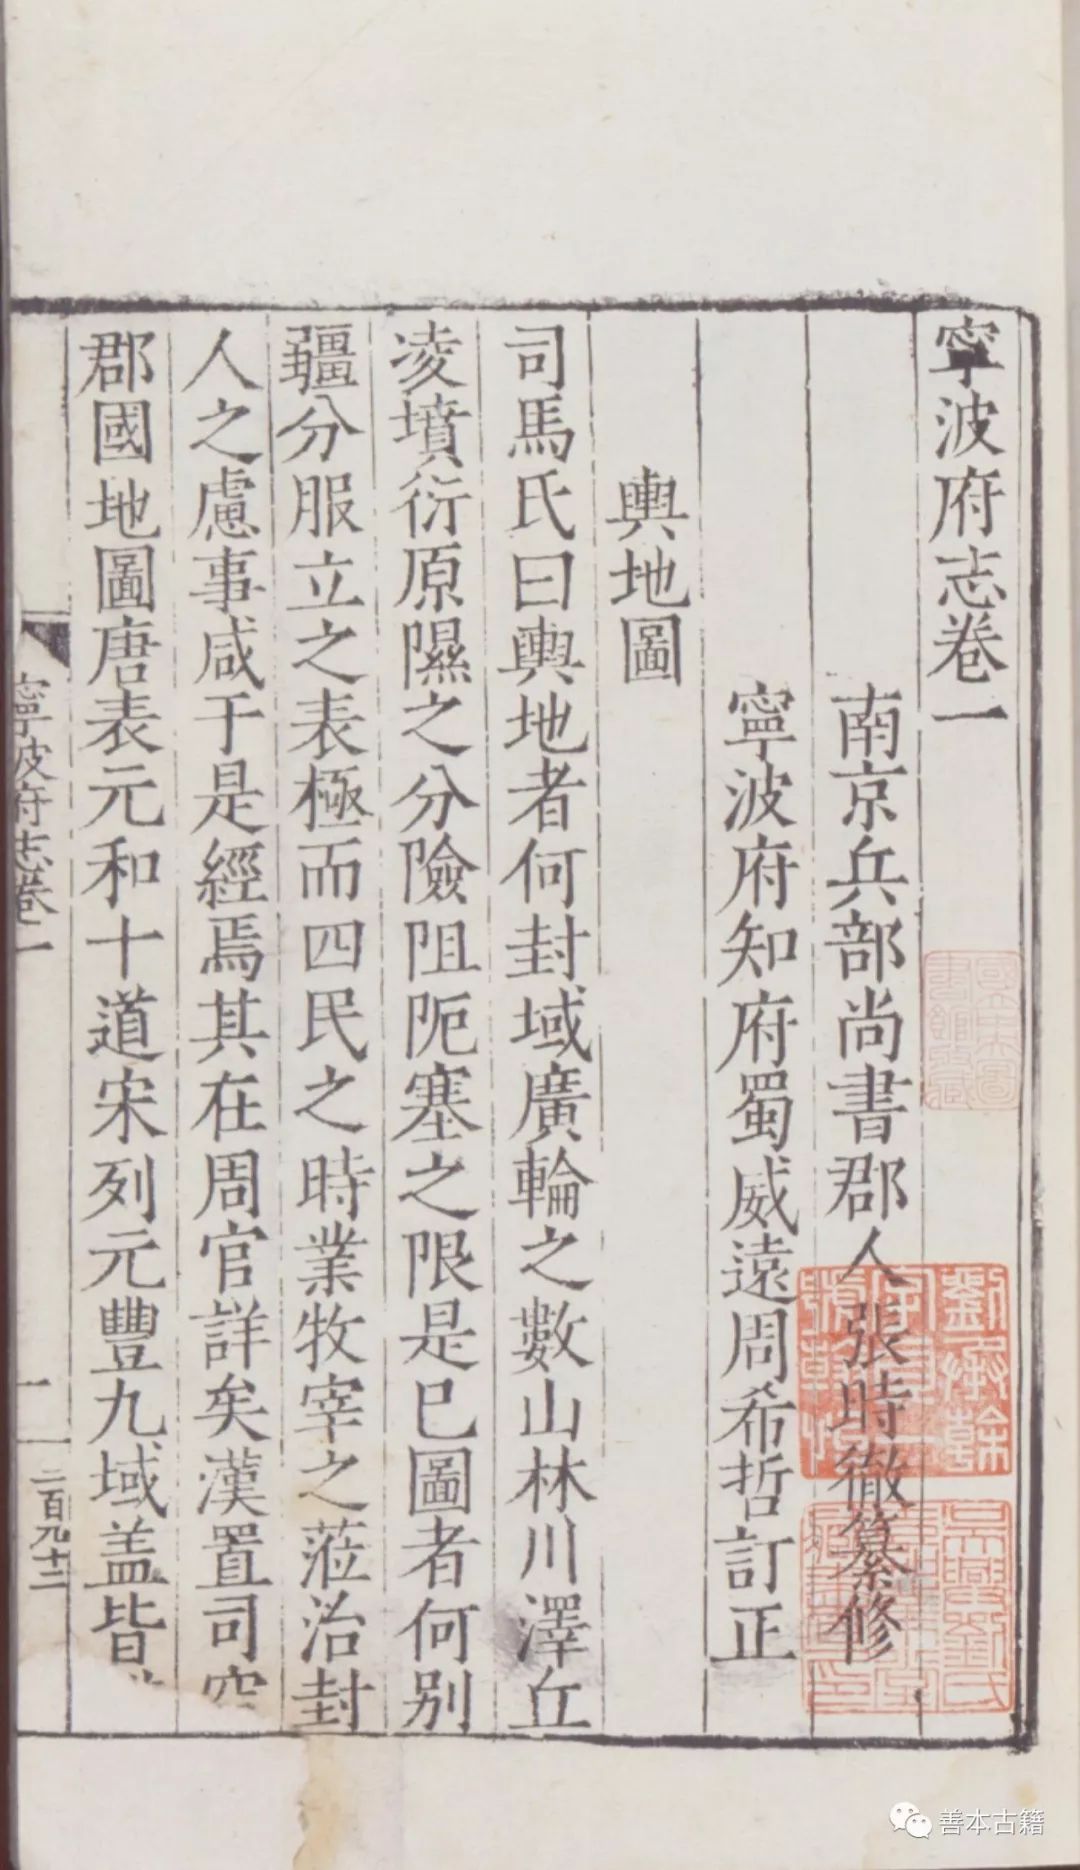 寧波府志卷一
南京兵部尚書郡人張時徹纂修
寧波府知府蜀威遠周希哲訂正
輿地圖
司馬氏曰輿地者何封域廣輪之數山林川澤丘
凌墳衍原隰之分險阻阨塞之限是已圖者何別
疆分服立之表極而四民之時業牧宰之蒞治封
人之慮事咸于是經焉其在周官詳矣漢置司空
郡國地圖唐表元和十道宋列元豐九域盖皆
寧波府志卷一
一
二百九十二
劉承幹字貞一號翰怡
吳興劉氏嘉業堂藏書印
善本古籍